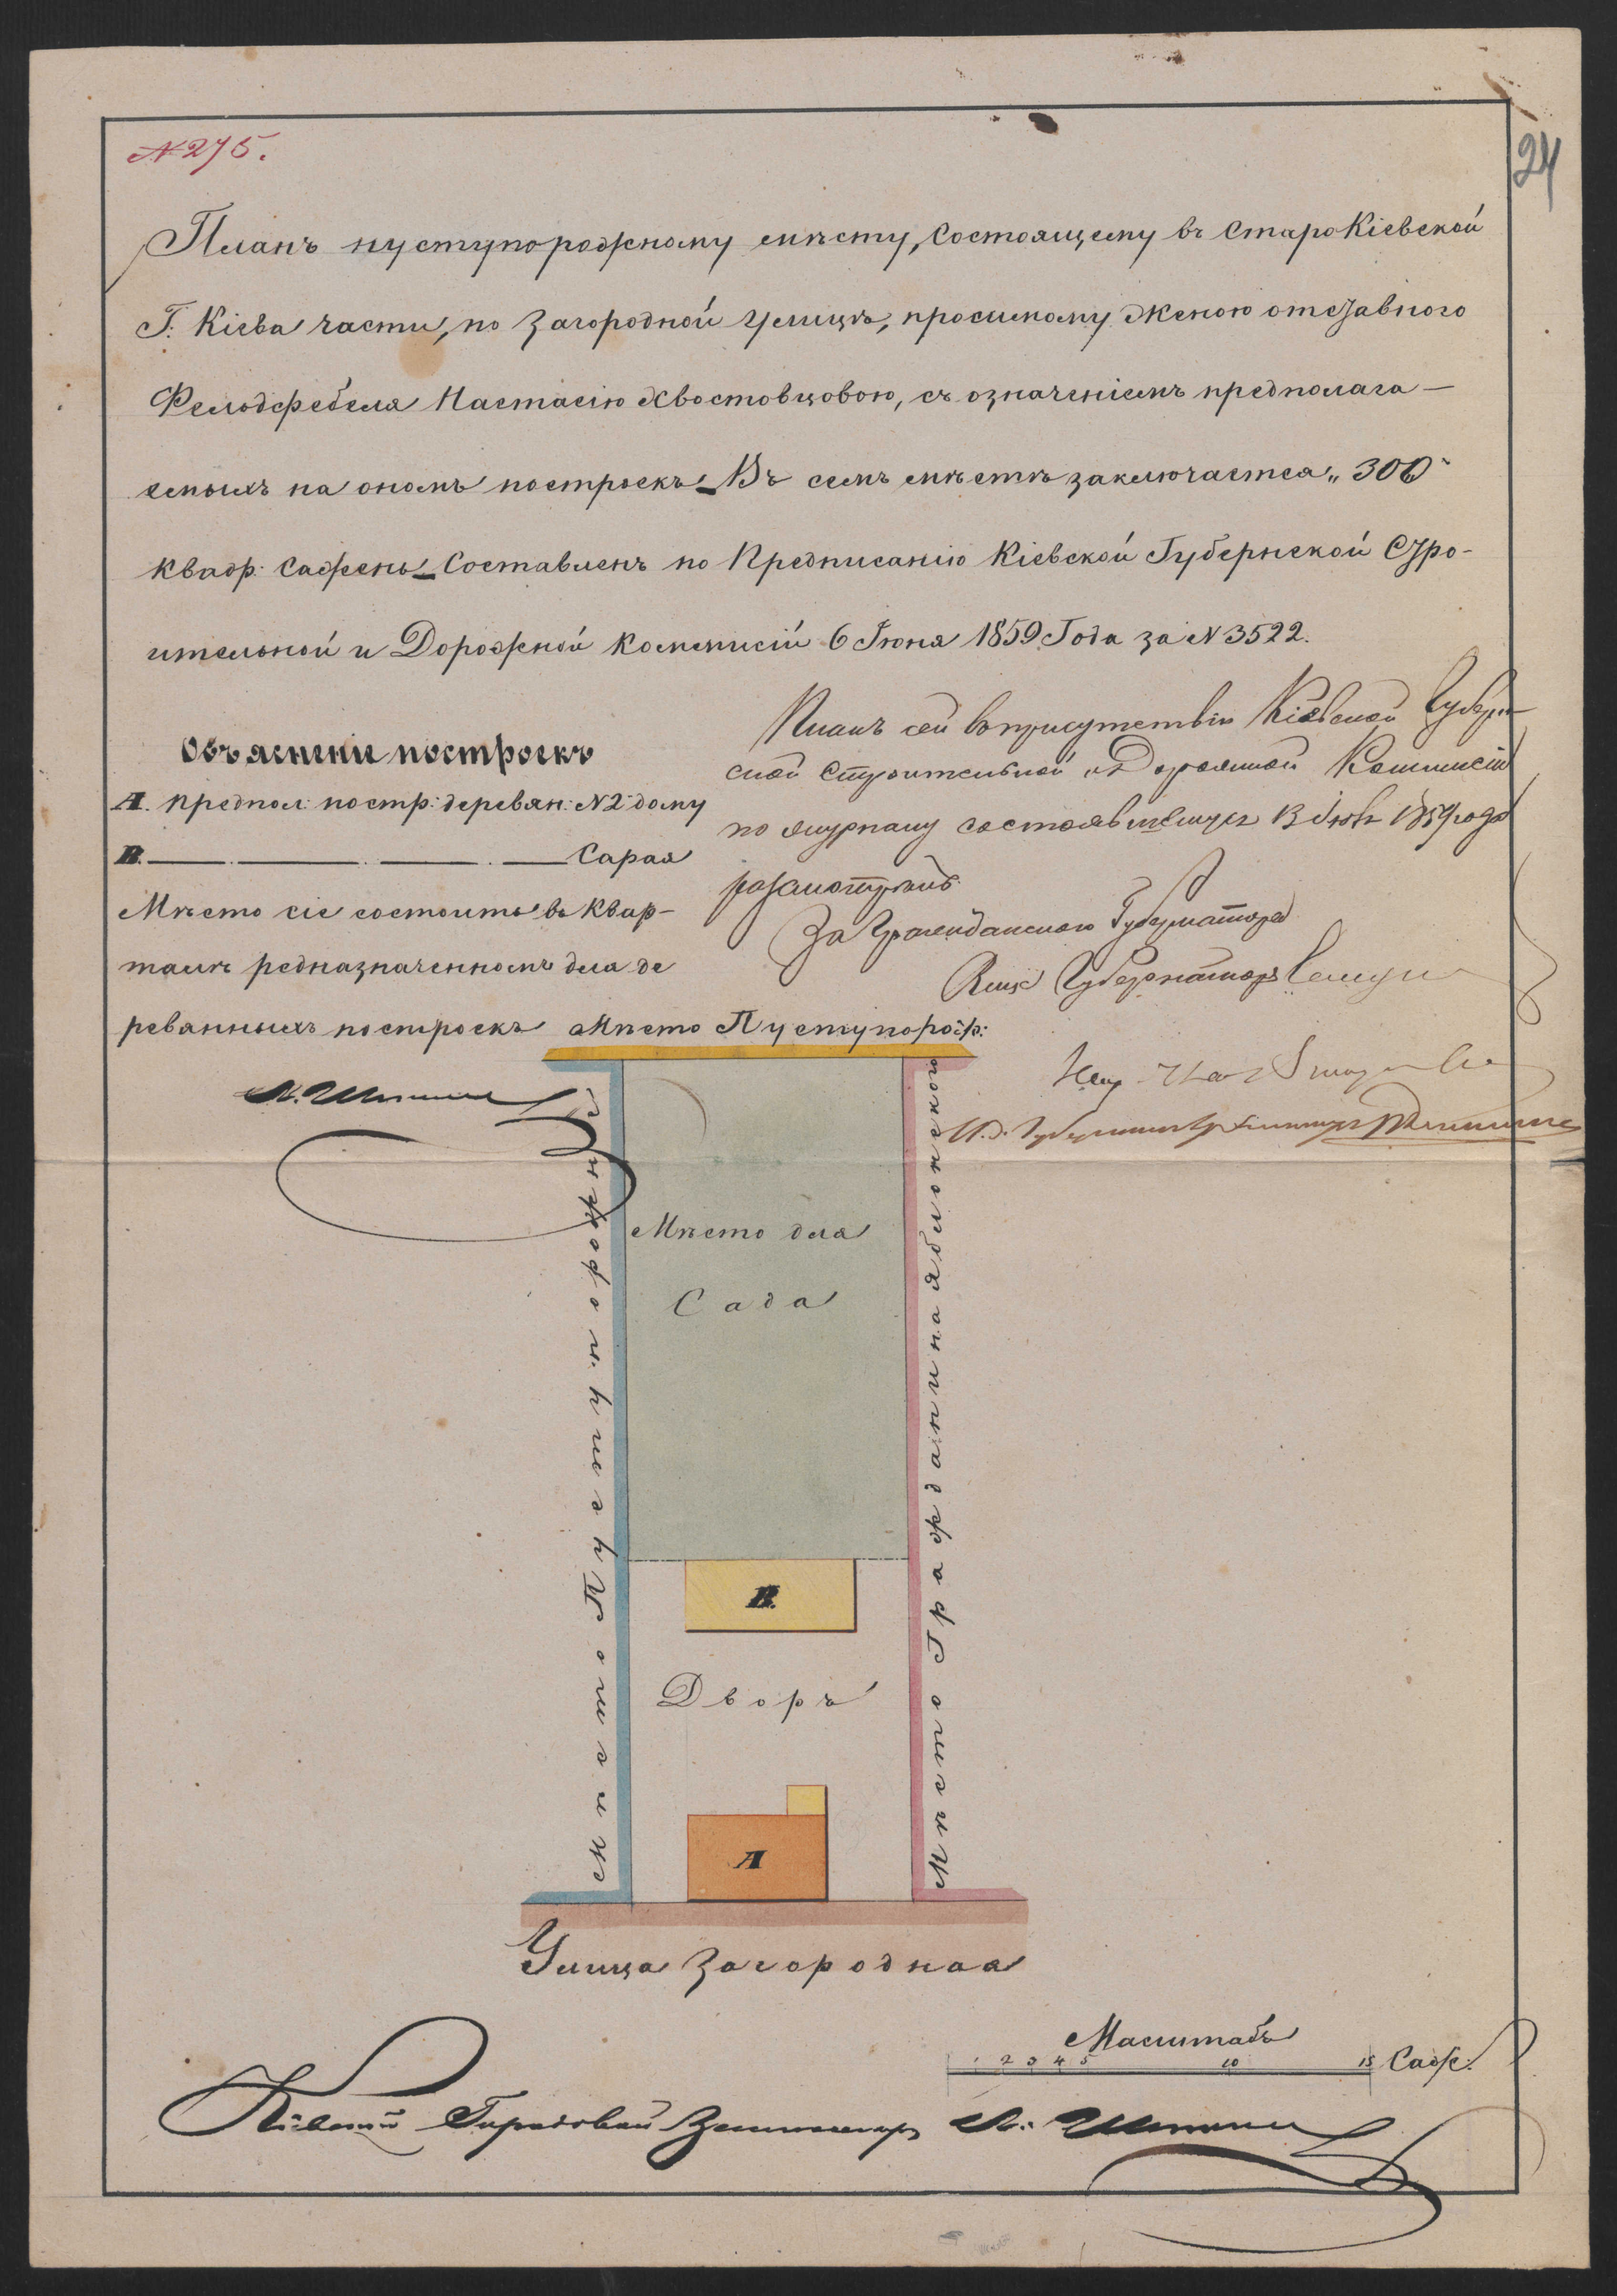 № 275.
24
Планъ пуступорожному мѣсту, состоящему въ Старокіевской
Г. Кіева части, по Загородной Улицѣ, просимому Женою отставного
Фельдфебеля Настасію Хвостовцовою, съ означеніемъ предполага-
емыхъ на ономъ построекъ. Въ семъ мѣстѣ заключается „300"
квадр: сажень. Составленъ по Предписанію Кіевской Губернской Стро-
ительной и Дорожной Коммисіи 6 Іюня 1859 Года за № 3522.
Объясненіе построекъ
А. предпол: постр: деревян: № 2 дому
В. Сарая
Мѣсто сіе состоитъ въ квар-
талѣ редназначенномъ для де
реванныхъ построекъ
Планъ сей въ присутствіи Кіевской Губерн
ской Строительной и Дорожной Коммисіи
по журналу состоявшемуся 13 Іюля 1859 года
разсмотрѣнъ.
За Гражданскаго Губернатора
Вице Губернаторъ
Мѣсто Пуступорож:
Мѣсто Пуступорожн
Мѣсто для
Сада
Мѣсто Гражданина Яблонскаго
В.
Дворъ
А
Улица Загородная
Масштабъ
1 2 3 4 5 10 15 Саж:
Кіевскій Городовой Землемѣръ